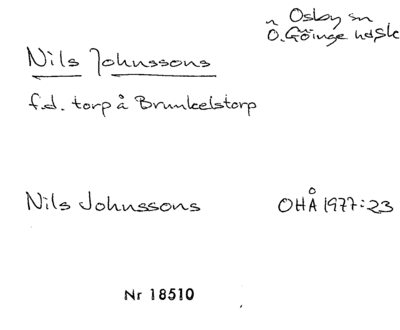 n Osby sn
Ö. Göinge hdsk
Nils Johnssons
f.d. torp å Brunkelstorp
Nils Johnssons OHÅ 1977:23
Nr 18510